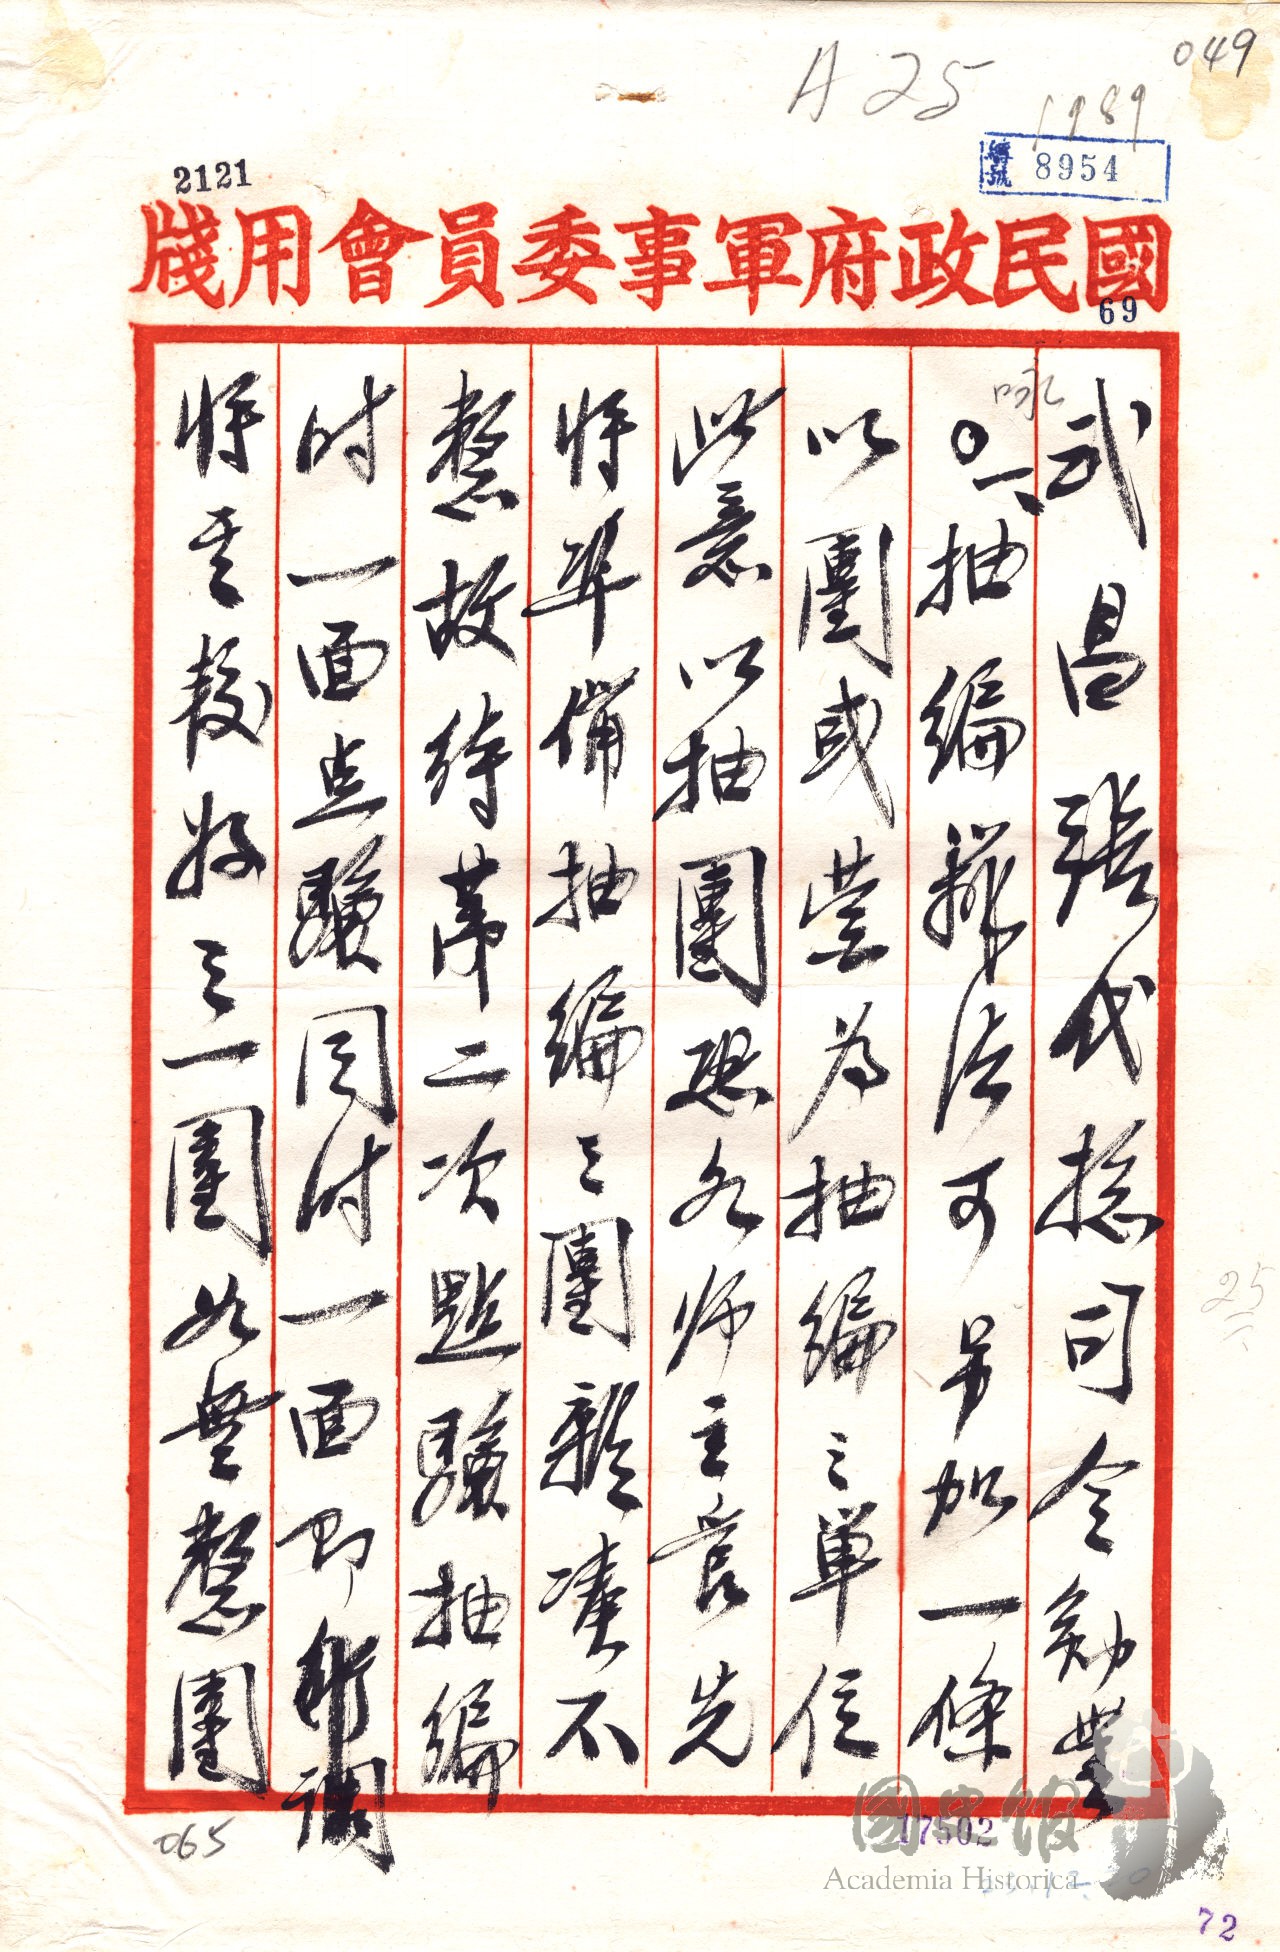 049
A 25
1989
編號 8954
2121
國民政府軍事委員會用牋
69
武昌張代總司令勛鑒
詠
抽編辦法可另加一條
以團或營為抽編之單位
此意以抽團恐各師主官先
將準備抽編之團雜湊不
整故待第二次點驗抽編
時一面点驗同時一面即調
將其較好之一團如無整團
25
065
17502
國史館
Academia Historica
72